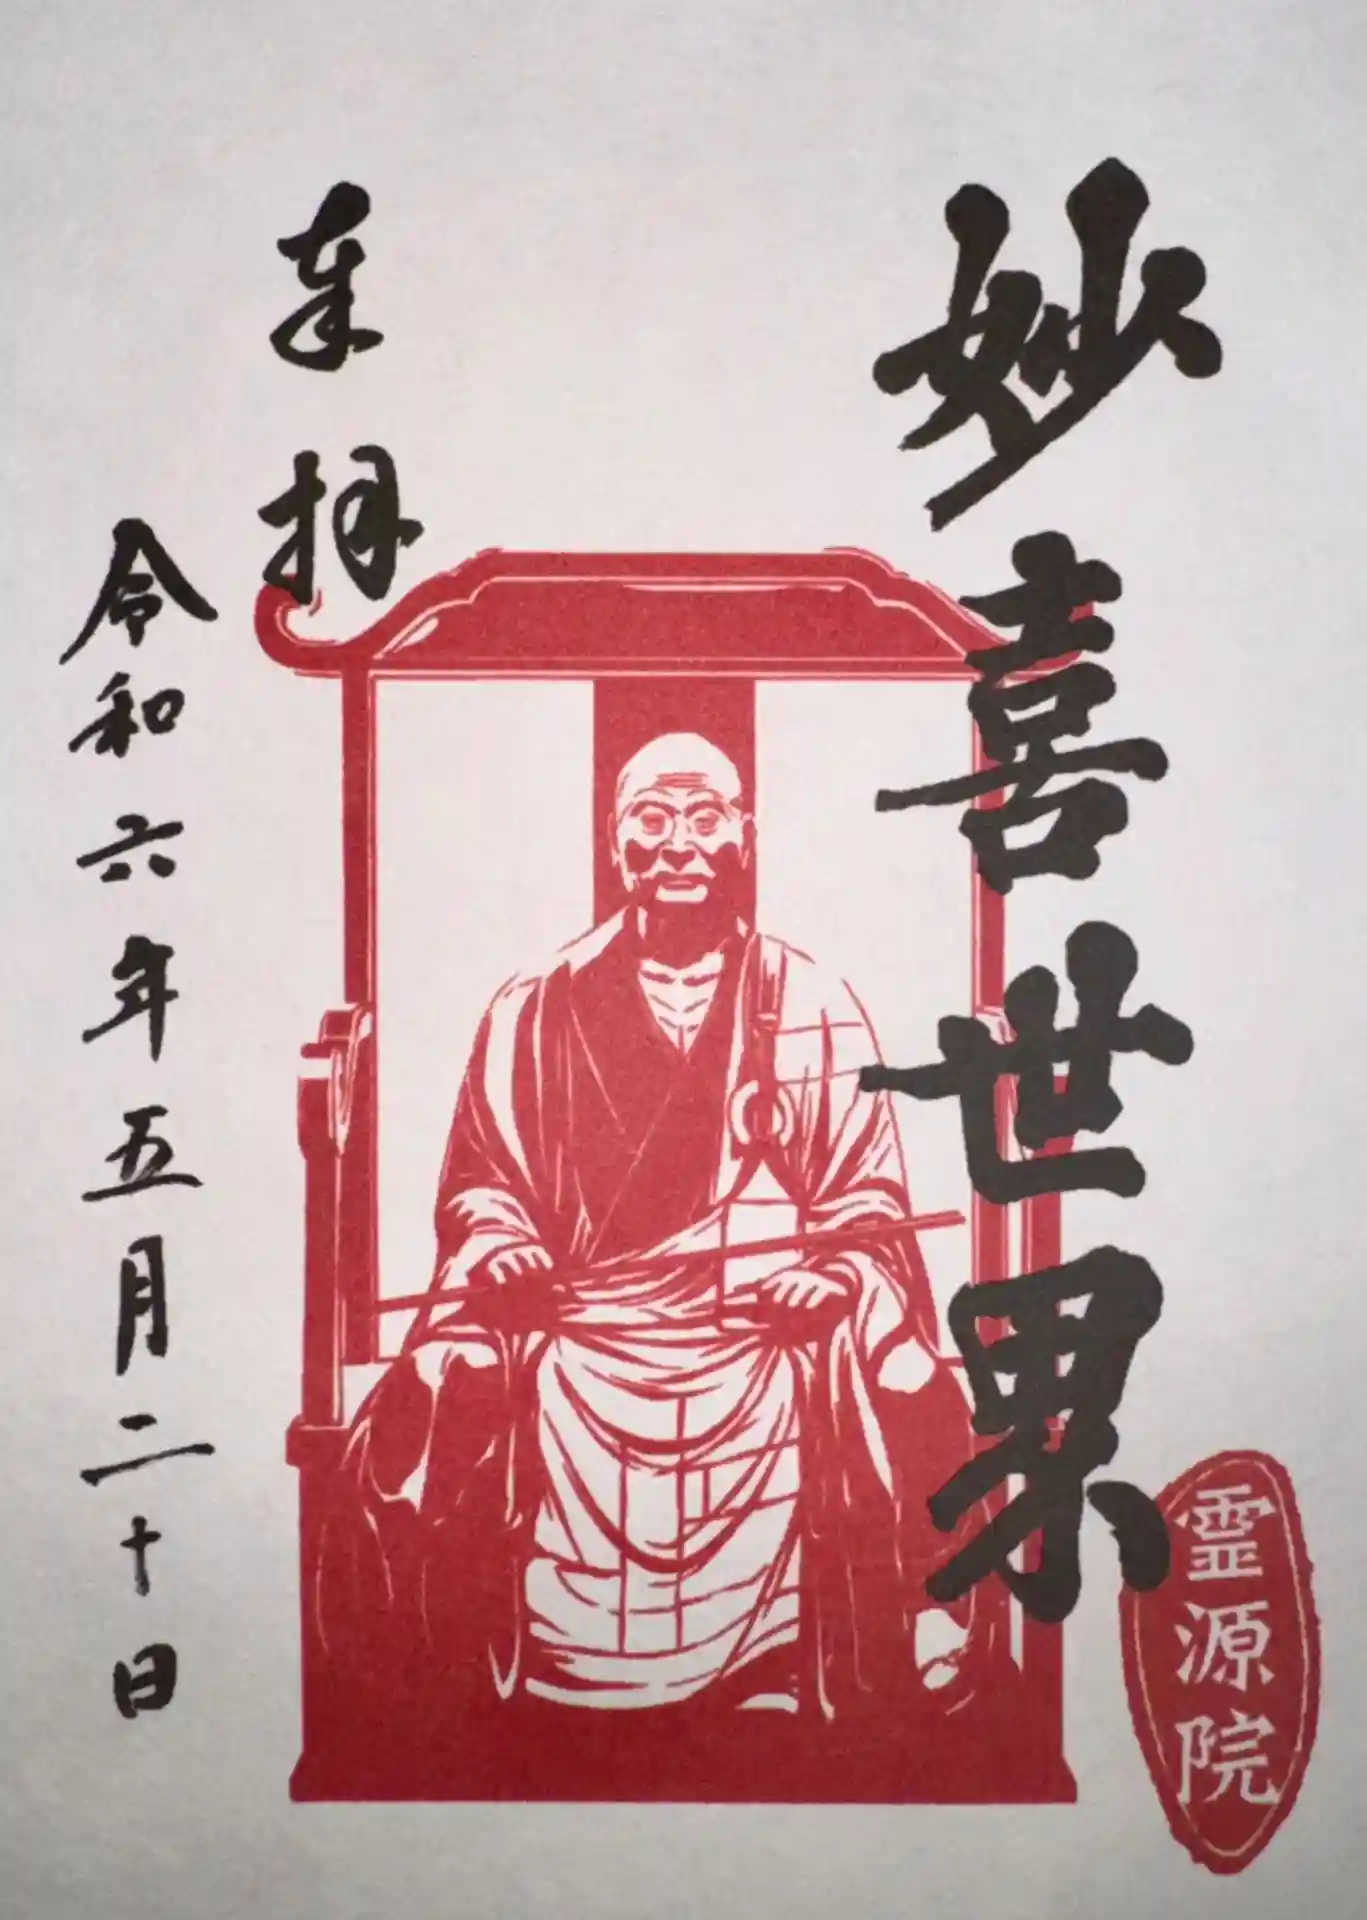 妙喜世界
霊源院
奉拝
令和六年五月二十日